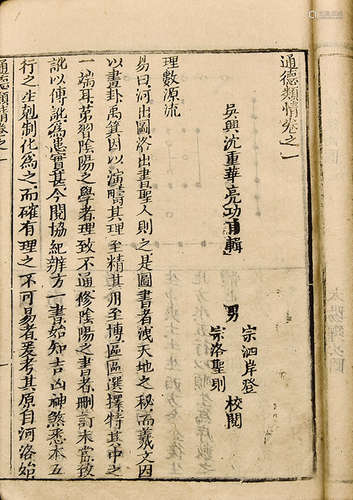 通德類情卷之一
吳興沈重華亮功甫輯
男
宗泗岸登
宗洛聖則
校閱
理數源流
易曰河出圖洛出書聖人則之是圖書者洩天地之秘而羲文因
以畫卦禹箕因以演疇其理至精其用至博區區選擇特其中之
一端耳第習陰陽之學者理致不通修陰陽之書者刪訂未當致
訛以傳訛為患實甚今閱協紀辨方一書始知吉凶神煞悉本五
行之生剋制化為之而確有理之不可易者爰考其原自河洛始
通德類情卷之一